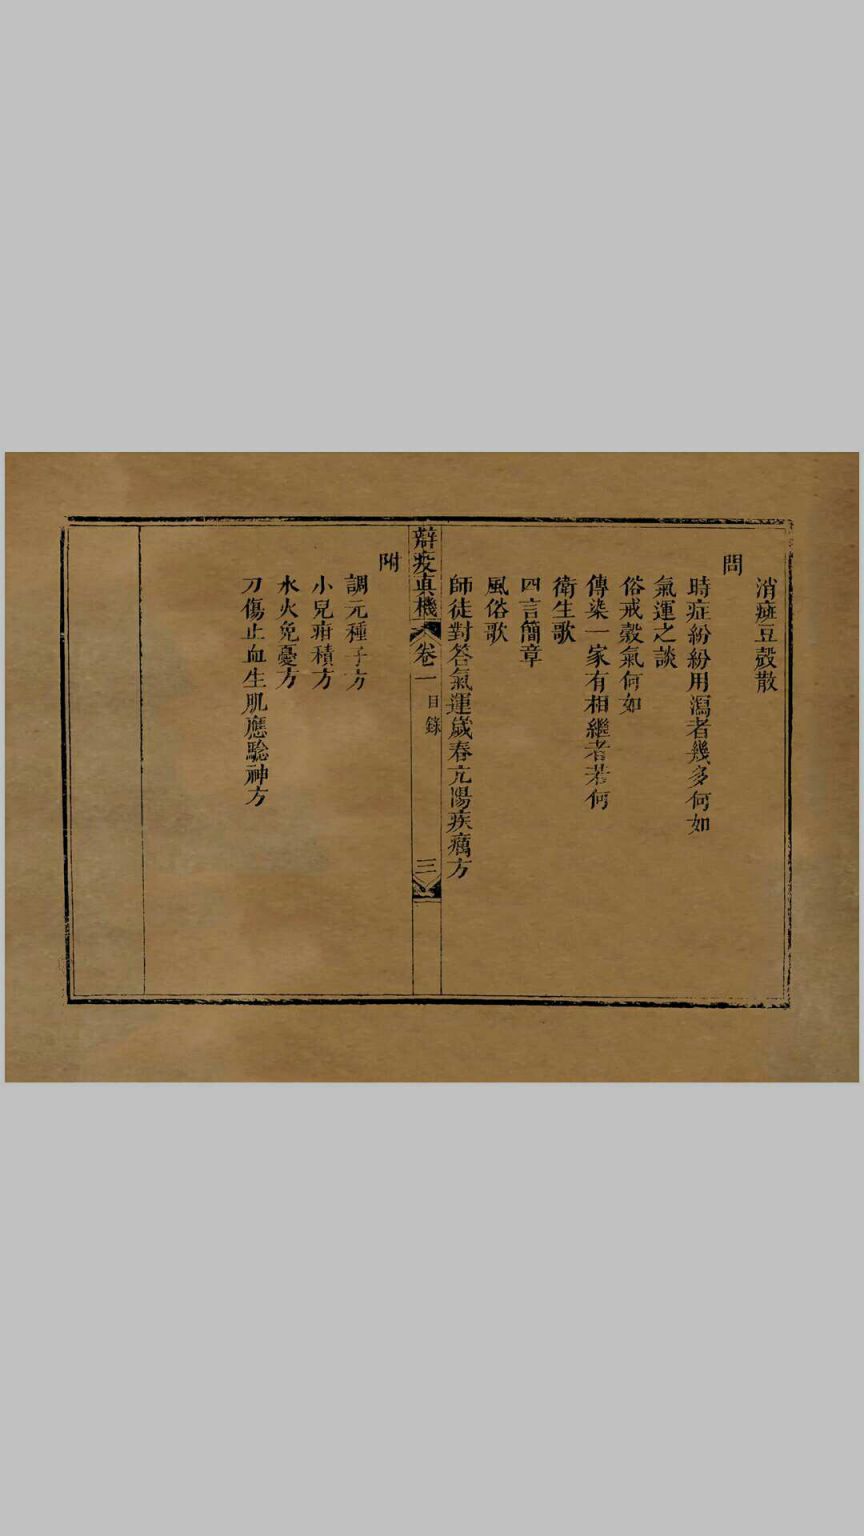 消癍豆殼散
問
時症紛紛用瀉者幾多何如
氣運之談
俗戒穀氣何如
傳染一家有相繼者若何
衛生歌
四言簡章
風俗歌
師徒對答氣運歲春亢陽疾癘方
辟疫真機 卷一 目錄 三
附
調元種子方
小兒疳積方
水火免憂方
刀傷止血生肌應驗神方